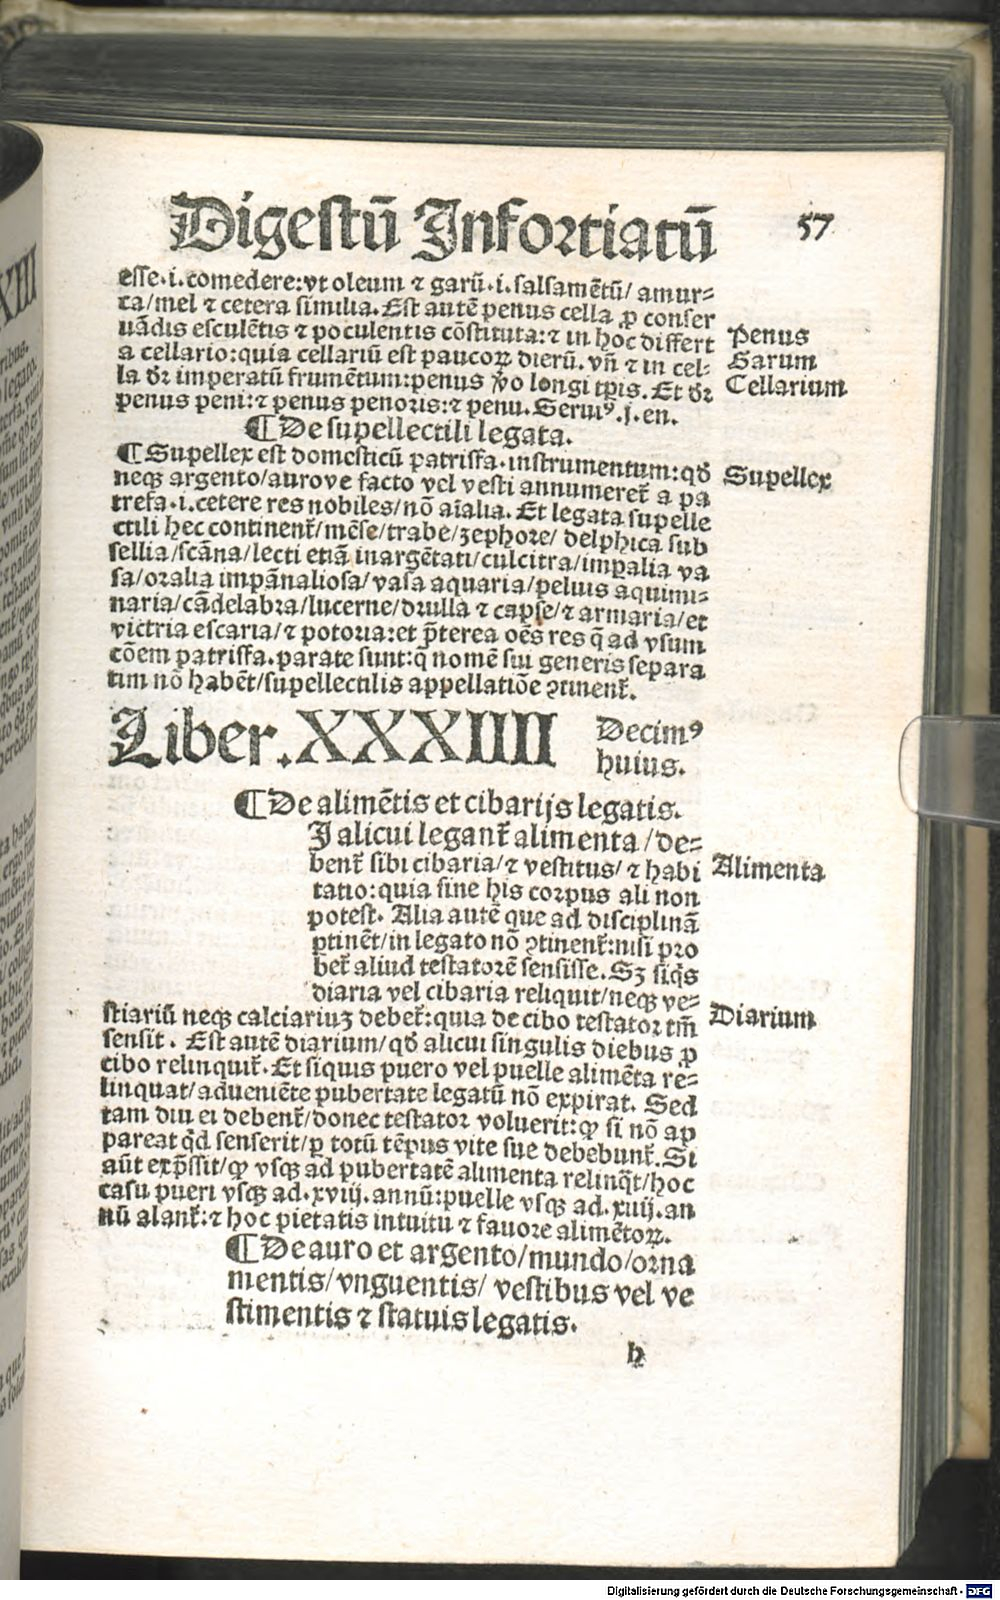 Digestū Infortiatū 57
esse.i.comedere:vt oleum ⁊ garū.i.salsamētū/ amur⸗
ca/mel ⁊ cetera similia. Est autē penus cella ꝓ conser
uādis esculētis ⁊ poculentis cōstituta:⁊ in hoc differt
a cellario:quia cellariū est paucoꝝ dierū. vn̄ ⁊ in cel⸗
la dr̄ imperatū frumētum:penus ꝟo longi tp̄is. Et dr̄
penus peni:⁊ penus penoris:⁊ penu. Seruiꝰ.j.en.
Penus
Garum
Cellarium
¶ De supellectili legata.
¶ Supellex est domesticū patrissa.instrumentum:qd̄
neqꝫ argento/aurove facto vel vesti annumeret̄ a pa
trefa.i.cetere res nobiles/nō aīalia. Et legata supelle
ctili hec continent̄/mēse/trabe/zephore/ delphica sub
sellia/scāna/lecti etiā inargētati/culcitra/imꝑalia va
sa/oralia impānaliosa/vasa aquaria/peluis aquimi⸗
naria/cādelabra/lucerne/drulla ⁊ capse/⁊ armaria/et
victria escaria/⁊ potoria:et p̄terea oēs res q̄ ad vsum
cōem patrissa.parate sunt:q̄ nomē sui generis separa
tim nō habēt/supellectilis appellatiōe ꝯtinent̄.
Supellex
Liber.XXXIIII Decimꝰ
huius.
¶ De alimētis et cibarijs legatis.
I alicui legant̄ alimenta /de⸗
bent̄ sibi cibaria/⁊ vestitus/ ⁊ habi
tatio:quia sine his corpus ali non
potest. Alia autē que ad disciplinā
ꝑtinēt/in legato nō ꝯtinent̄:nisi pro
bet̄ aliud testatorē sensisse. Sꝫ siq̇s
diaria vel cibaria reliquit/neqꝫ ve⸗
stiariū neqꝫ calciariuꝫ debet̄:quia de cibo testator tm̄
sensit . Est autē diarium/qd̄ alicui singulis diebus ꝓ
cibo relinquit̄. Et siquis puero vel puelle alimēta re⸗
linquat/adueniēte pubertate legatū nō expirat. Sed
tam diu ei debent̄/donec testator voluerit:ꝙ si nō ap
pareat qd̄ senserit/ꝑ totū tēpus vite sue debebunt̄. Si
aūt exp̄ssit/ꝙ vsqꝫ ad pubertatē alimenta relinq̄t/hoc
casu pueri vsqꝫ ad.xviij.annū:puelle vsqꝫ ad.xiiij.an
nū alant̄:⁊ hoc pietatis intuitu ⁊ fauore alimētoꝝ.
Alimenta
Diarium
¶ De auro et argento/mundo/orna
mentis/vnguentis/ vestibus vel ve
stimentis ⁊ statuis legatis.
h
Digitalisierung gefördert durch die Deutsche Forschungsgemeinschaft - DFG